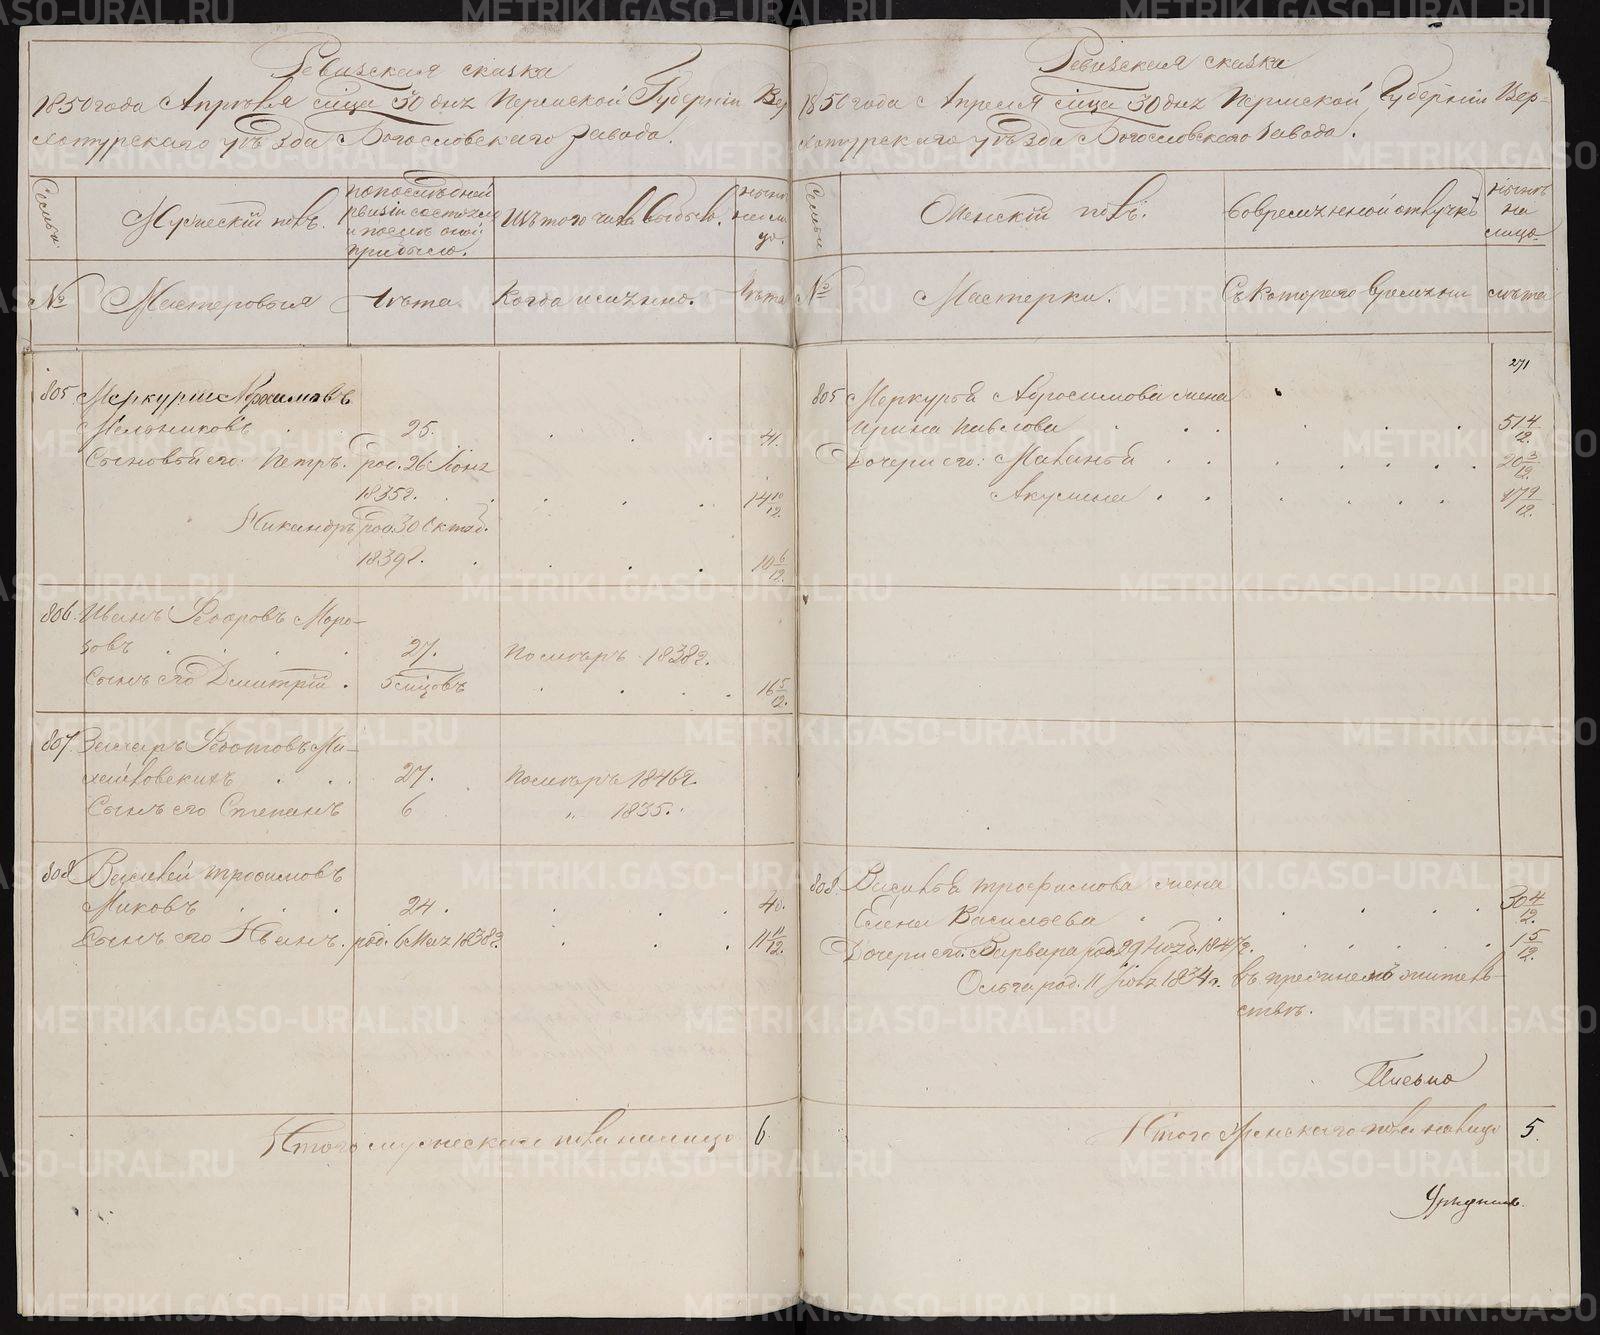 Ревизская сказка
1850 года Апреля мца 30 дня Пермской Губернии Вер
хотурского уѣзда Богословского завода.
Семьи.
Мужескій полъ.
по последней
ревизіи состояло
и после оной
прибыло.
Изъ того числа выбыло.
ныне
на ли
цо.
№
Мастеровыя
Лѣта
Когда именно.
Лѣта
805 Меркурий Абросимовъ
Мельниковъ . . 25. . . . 41.
Сыновья его: Петръ. род. 26 Іюня
1835г. . . . 14 10/12.
Никандръ род. 30 Октяб.
1839г. . . . 10 6/12.
806. Иванъ Федоровъ Моро-
зовъ . . . . 27. Померъ 1838г.
Сынъ его Дмитрій . 5 мцовъ . . . 16 5/12.
807. Захаръ Федотовъ
27. Померъ 1846г.
Сынъ его Степанъ 6 " 1835.
808 Василей Трофимовъ
Миковъ . . . 24. . . . 40.
Сынъ его Иванъ. род. 6 Мая 1838г. . . . 11 11/12.
Итого мужеска пола налицо 6.
Ревизская сказка
1850 года Апреля мца 30 дня Пермской Губерніи Вер-
хотурского уѣзда Богословского завода.
Семьи
Женскій полъ.
Во временной отлучкѣ
Нынѣ
на
лицо.
№
Мастерки.
Съ которого времени
лѣта
271
805 Меркурья Абросимова жена
Ирина Павлова . . . . . 51 4/12.
Дочери его: Маланья . . . . . . . 20 3/12.
Акулина . . . . . . 17 9/12.
808. Василья Трофимова жена
Елена Васильева . . . . . 30 4/12.
Дочери его. Варвара род. 29 Нояб. 184 г. . . . . 1 5/12.
Ольга род. 11 Іюля 1834г. въ прежнемъ житель-
ствѣ.
Итого Женского пола налицо 5.